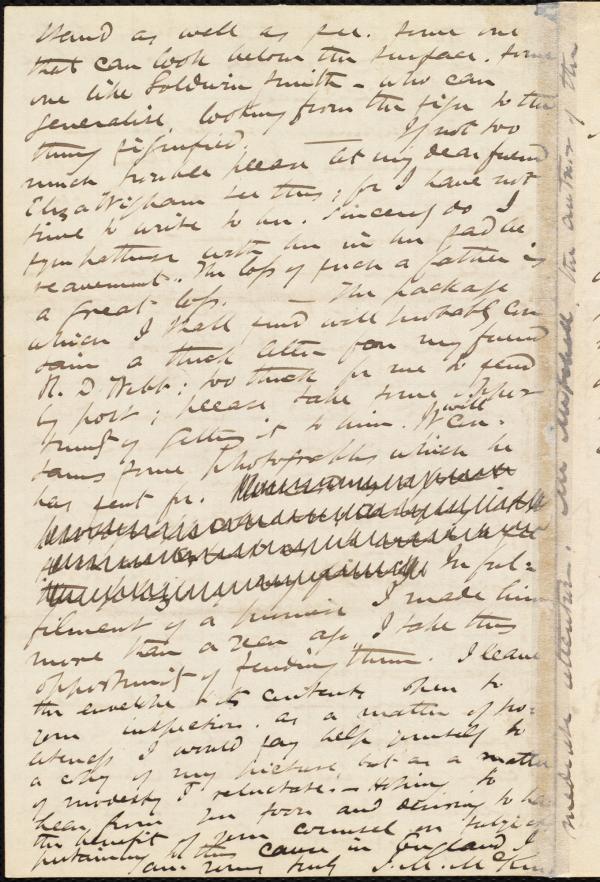 stand as well as see. Some one
that can look below the surface. Some
one like Goldwin Smith - who can
generalise, looking from the sign to the
thing signified. — If not too
much trouble please let my dear friend
Eliza Wigham see this; for I have not
time to write to her. Sincerely do I
sympathise with her in her sad be
reavement. The loss of such a father is
a great loss. — The package
which I shall send will probably con
tain a thick letter for my friend
R. D. Webb; too thick for me to send
by post; please take some oppor
tunity of getting it to him. It will con-
tains some photographs which he
has sent for.
In ful=
filment of a promise I made him
more than a year ago, I take this
opportunity of sending them. I leave
the envelope & its contents open to
your inspection. As a matter of po=
liteness I would say help yourself to
a copy of my picture, but as a matter
of modesty I reluctate. — Hoping to
hear from you soon and desiring to have
the benefit of your counsel on subjects
pertaining to this cause in England I
am yours truly J. M. McKim
mediate attention. Mr the author of the